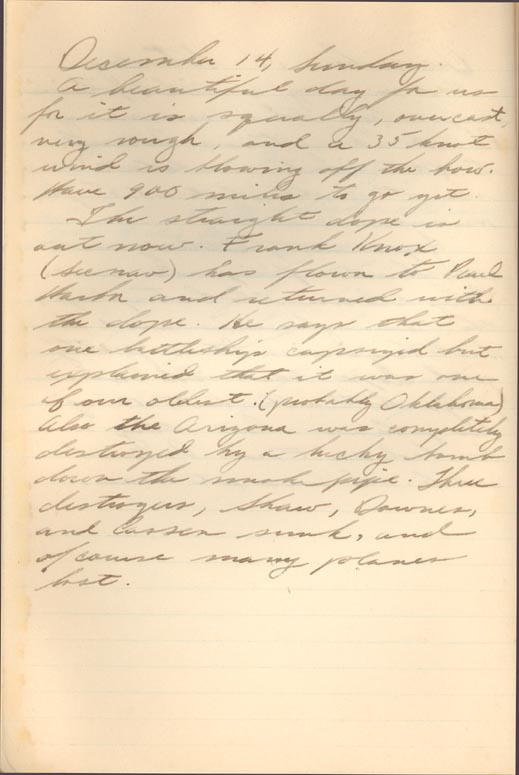 December 14, Sunday.
A beautiful day for us
for it is squally, overcast,
very rough, and a 35 knot
wind is blowing off the bow.
Have 900 miles to go yet.
The straight dope is
out now. Frank Knox
(Secnav) has flown to Pearl
Harbor and returned with
the dope. He says that
one battleship capsized but
explained that it was one
of our oldest. (probably Oklahoma)
Also the Arizona was completely
destroyed by a lucky bomb
down the smoke pipe. Three
destroyers, Shaw, Downes,
and Cassen sunk, and
of course many planes
lost.